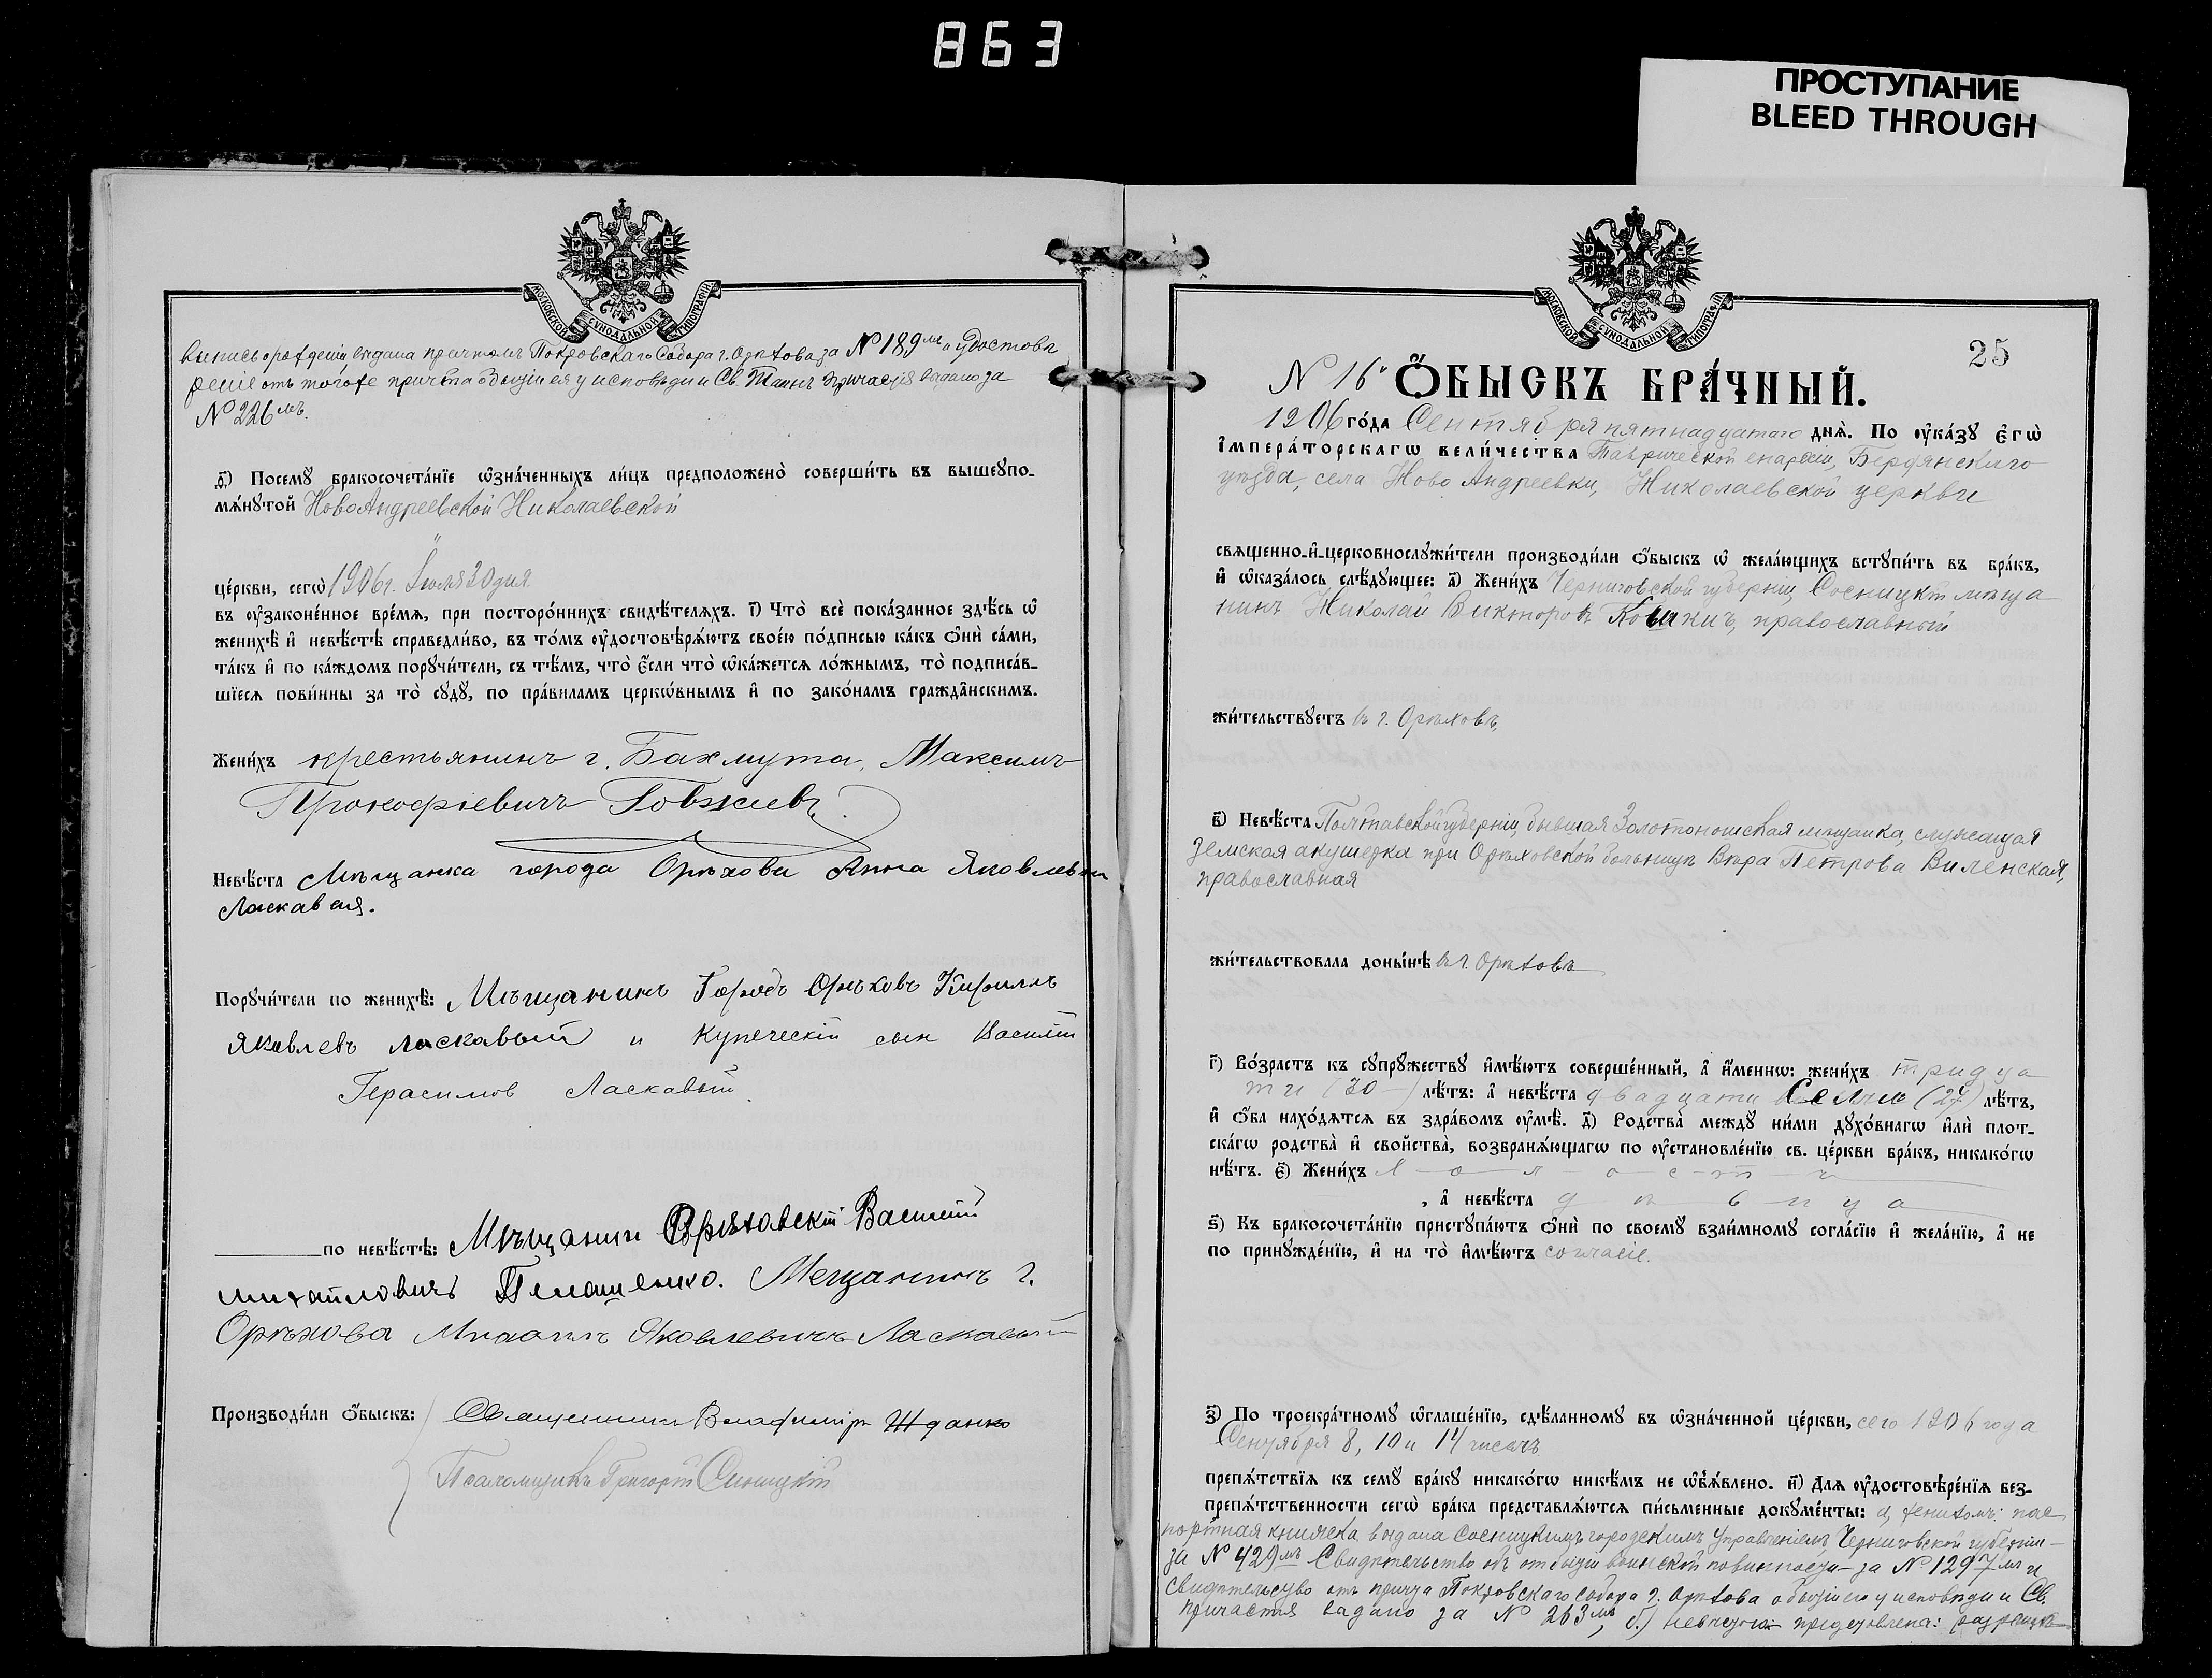 863
ПРОСТУПАНИЕ
BLEED THROUGH
МОСКОВСКОЙ СѴНОДАЛЬНОЙ ТИПОГРАФІИ
выпись о рожденіи выдана причтомъ Покровскаго Собора г. Орѣхова за № 189мъ и удостове
реніе отъ того же причта о бытіи ея у исповѣди и Св. Таинъ Причастія выдано за
№ 226мъ.
ѳ) Посемꙋ бракосочета́нїе ѡзна́ченныхъ ли́цъ предположено̀ соверши́ть въ вышеꙋпо-
мѧ́нꙋтой НовоАндреевской Николаевской
це́ркви, сегѡ̀ 1906 г. Іюля 30 дня
въ ᲂу҆законе́нное вре́мѧ, при посторо́ннихъ свидѣ́телѧхъ. і) Что̀ всѐ пока́занное здѣ́сь ѡ҆
женихѣ̀ и҆ невѣ́стѣ справедли́во, въ то́мъ ᲂу҆достовѣрѧ́ютъ свое́ю по́дписью ка́къ ѻ҆нѝ са́ми,
та́къ и҆ по ка́ждомъ порꙋчи́тели, съ тѣ́мъ, что̀ є҆́сли что̀ ѡ҆ка́жетсѧ ло́жнымъ, то̀ подписа́в-
шїесѧ пови́нны за то̀ сꙋдꙋ̀, по пра́виламъ церкѡ́внымъ и҆ по зако́намъ гражда̂нскимъ.
Жени́хъ крестьянинъ г. Бахмута, Максимъ
Прокофіевичъ
Невѣ́ста Мѣщанка города Орѣхова Анна Яковлевна
Ласкавая.
Порꙋчи́тели по женихѣ̀: Мѣщанинъ Городъ Орѣховъ Кирилъ
Яковлевъ Ласкавый и Купеческій сын Василій
Герасимов Ласкавый
по невѣ́стѣ: Мѣщанин Орѣховскій Василій
Михайловичъ Пелашенко. Мещанинъ г.
Орѣхова Михаилъ Яковлевичъ Ласкавый
Производи́ли ѻ҆́быскъ: Священникъ Владиміръ Жданко
Псаломщикъ Григорій Синицкій
МОСКОВСКОЙ СѴНОДАЛЬНОЙ ТИПОГРАФІИ
25
№ 16. Ѻ҆́БЫСКЪ БРА́ЧНЫЙ.
1906 го́да Сентября пятнадцатаго днѧ̀. По ᲂу҆ка́зꙋ є҆гѡ̀
і҆мпера́торскагѡ вели́чества Таврической епархіи, Бердянскаго
уѣзда, села Ново Андреевки, Николаевской церкви
свѧщенно-и҆-церковнослꙋжи́тели производи́ли ѻ҆́быскъ ѡ҆ жела́ющихъ встꙋпи́ть въ бра́къ,
и҆ ѡ҆каза́лось слѣ́дꙋющее: а҃) Жени́хъ Черниговской губерніи, Сосницкій мѣща
нинъ Николай Викторовъ Кошкинъ, православный
жи́тельствꙋетъ въ г. Орѣховѣ,
в҃) Невѣ́ста Полтавской губерніи, бывшая Золотоношская мѣщанка, служащая
Земская акушерка при Орѣховской больницѣ Вѣра Петрова Виленская,
православная
жи́тельствовала донынѣ въ г. Орѣховѣ
г҃) Во́зрастъ къ сꙋпрꙋ́жествꙋ и҆мѣ́ютъ соверше́нный, а҆ и҆́меннѡ: жени́хъ тридца
ти (30) лѣ́тъ: а҆ невѣ́ста двадцати семи (27) лѣ́тъ,
и҆ ѻ҆́ба нахо́дѧтсѧ въ здра́вомъ ᲂу҆мѣ̀. д҃) Родства̀ междꙋ̀ ни́ми дꙋхо́внагѡ и҆лѝ плот-
ска́гѡ родства̀ и҆ свойства̀, возбранѧ́ющагѡ по ᲂу҆становле́нїю св. це́ркви бра́къ, никако́гѡ
нѣ́тъ. є҃) Жени́хъ холостъ
, а҆ невѣ́ста дѣвица
ѕ҃) Къ бракосочета́нїю пристꙋпа́ютъ ѻ҆нѝ по своемꙋ̀ взаи́мномꙋ согла́сїю и҆ жела́нїю, а҆ не
по принꙋжде́нїю, и҆ на то̀ и҆мѣ́ютъ согласіе.
з҃) По троекра́тномꙋ ѡ҆глаше́нїю, сдѣ́ланномꙋ въ ѡ҆зна́ченной це́ркви, сего 1906 года
Сентября 8, 10 и 14 чиселъ
препѧ́тствїѧ къ семꙋ̀ бра́кꙋ никако́гѡ никѣ́мъ не ѡ҆б̾ѧ́влено. и҃) Длѧ ᲂу҆достовѣре́нїѧ без-
препѧ́тственности сегѡ̀ бра́ка представлѧ́ютсѧ пи́сьменные докꙋме́нты: а, женихомъ: пас
портная книжка выдана Сосницкимъ городскимъ Управленіемъ Черниговской губерніи
за № 429мъ Свидѣтельство объ отбытіи воинской повинности за № 1297мъ и
свидѣтельство отъ причта Покровскаго собора г. Орѣхова о бытіи его у исповѣди и Св.
Причастія выдано за № 263мъ, б.) невѣстою представлена: